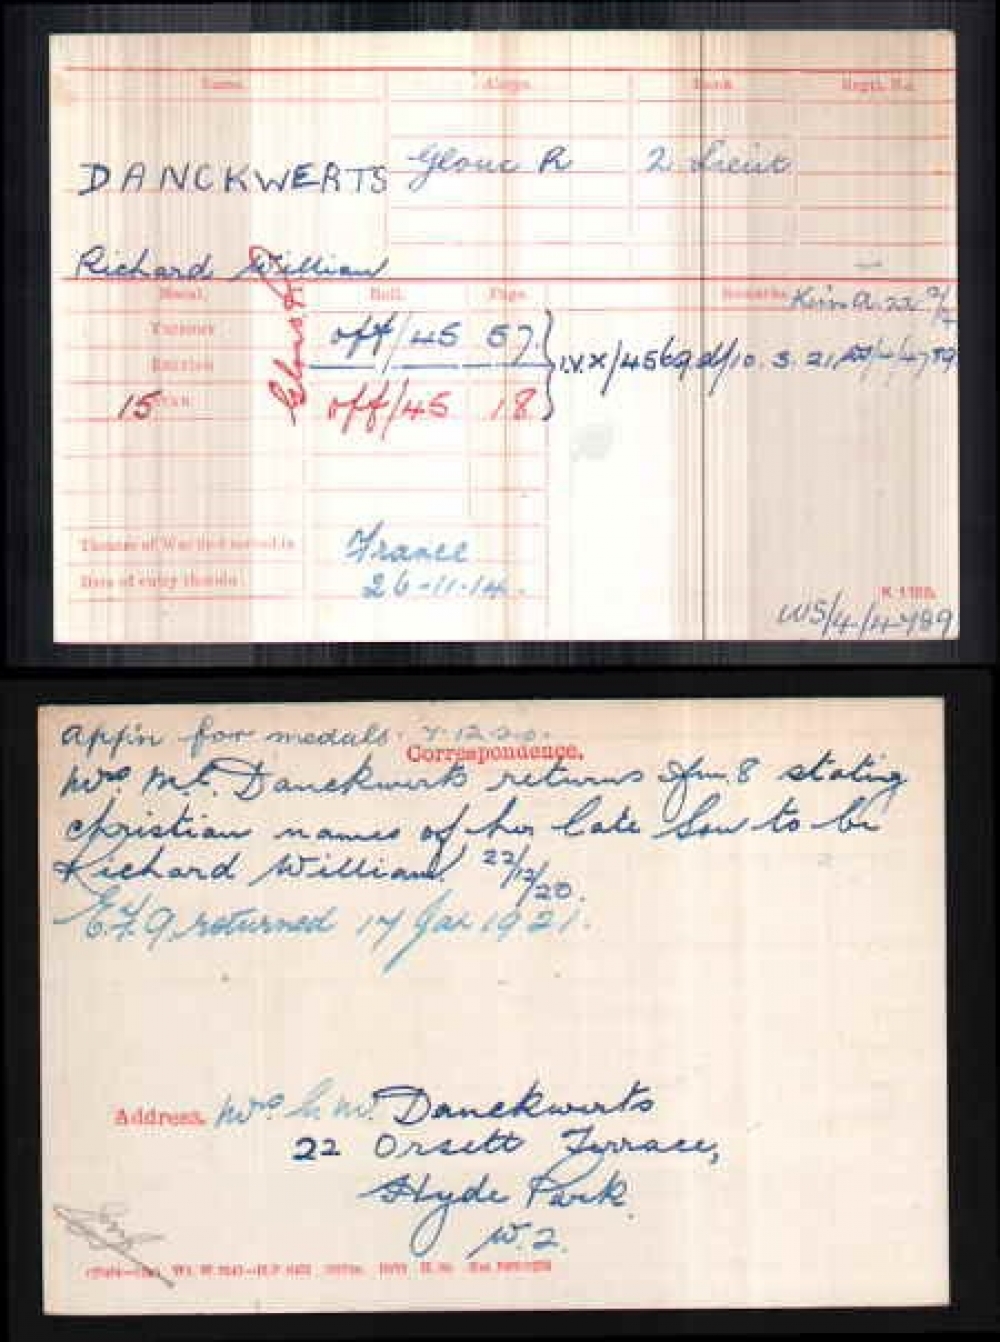 Name. Corps. Rank. Regtl. No.
DANCKWERTS Glouc R 2 Lieut
Richard William
Medal. Roll. Page. Remarks. Kin a.
Victory off/45 57
British IVX/4569 d/10.3.21
15 Star off/45 18
Clasp
Theatre of War first served in France
Date of entry therein 26-11-14.
K 1380.
WS/4/4789
appn for medals. 7.12.20.
Correspondence.
Mrs Danckwerts returns Ifm 8 stating
christian names of her late Son to be
Richard William 22/12/20.
E.F.9. returned 17 Jan 1921.
Address. Mrs Danckwerts
22 Orsett Terrace,
Hyde Park.
W.2.